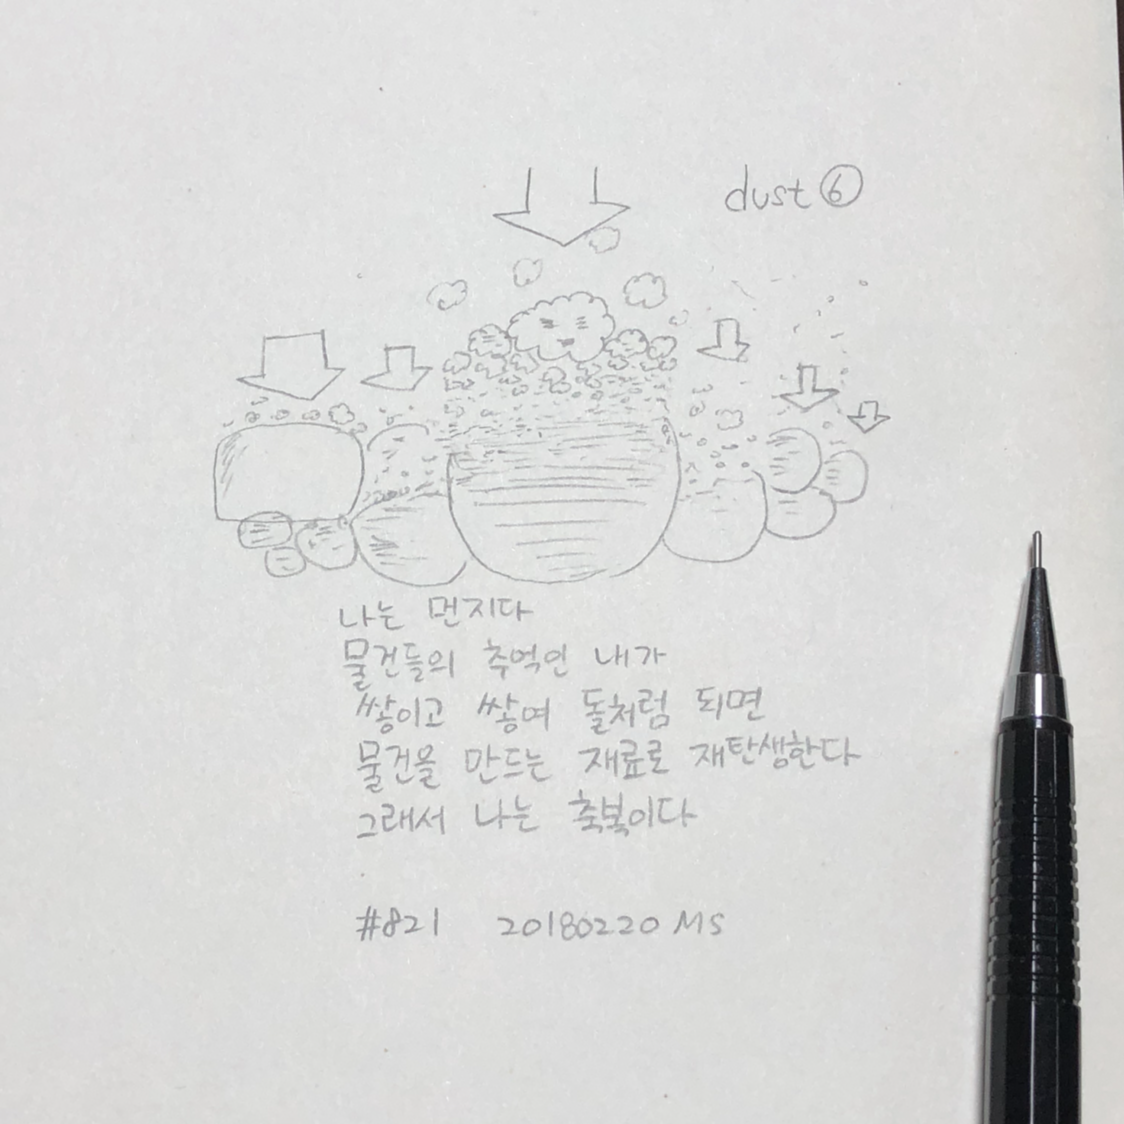 dust ⑥
나는 먼지다
물건들의 추억인 내가
쌓이고 쌓여 돌처럼 되면
물건을 만드는 재료로 재탄생한다
그래서 나는 축복이다
#821 20180220 MS